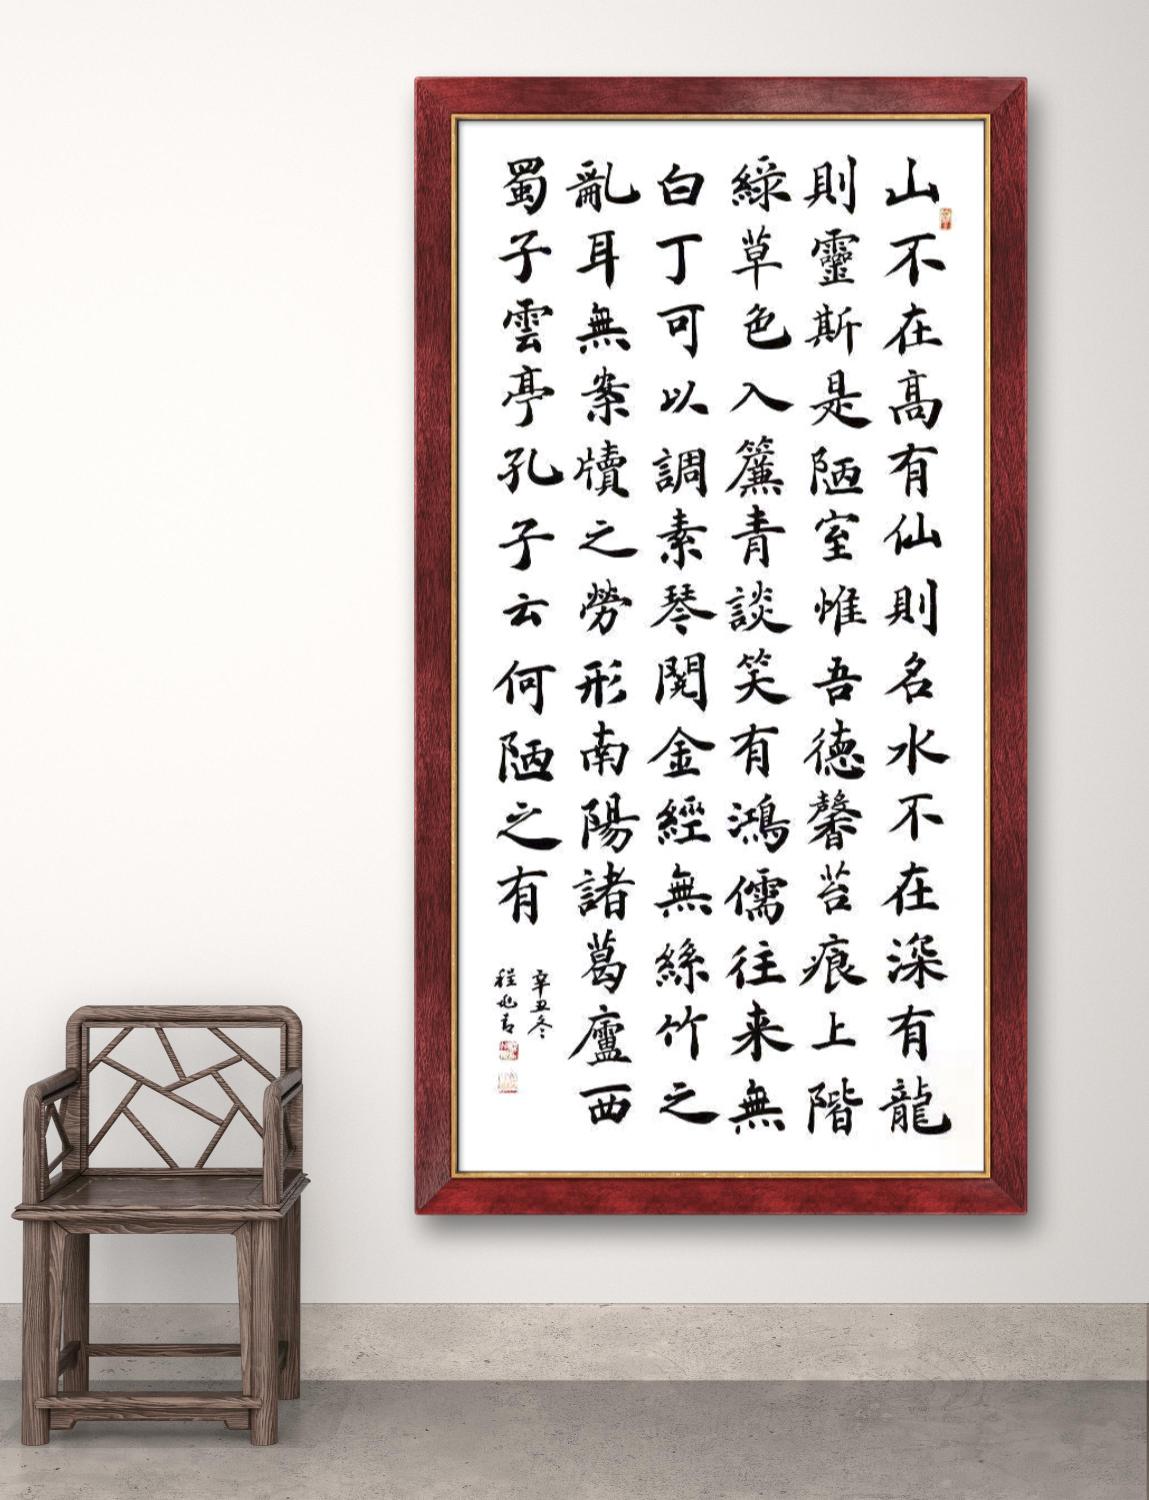 山不在高有仙則名水不在深有龍
則靈斯是陋室惟吾德馨苔痕上階
綠草色入簾青談笑有鴻儒往来無
白丁可以調素琴閱金經無絲竹之
亂耳無案牘之勞形南陽諸葛廬西
蜀子雲亭孔子云何陋之有
辛丑冬
程兆